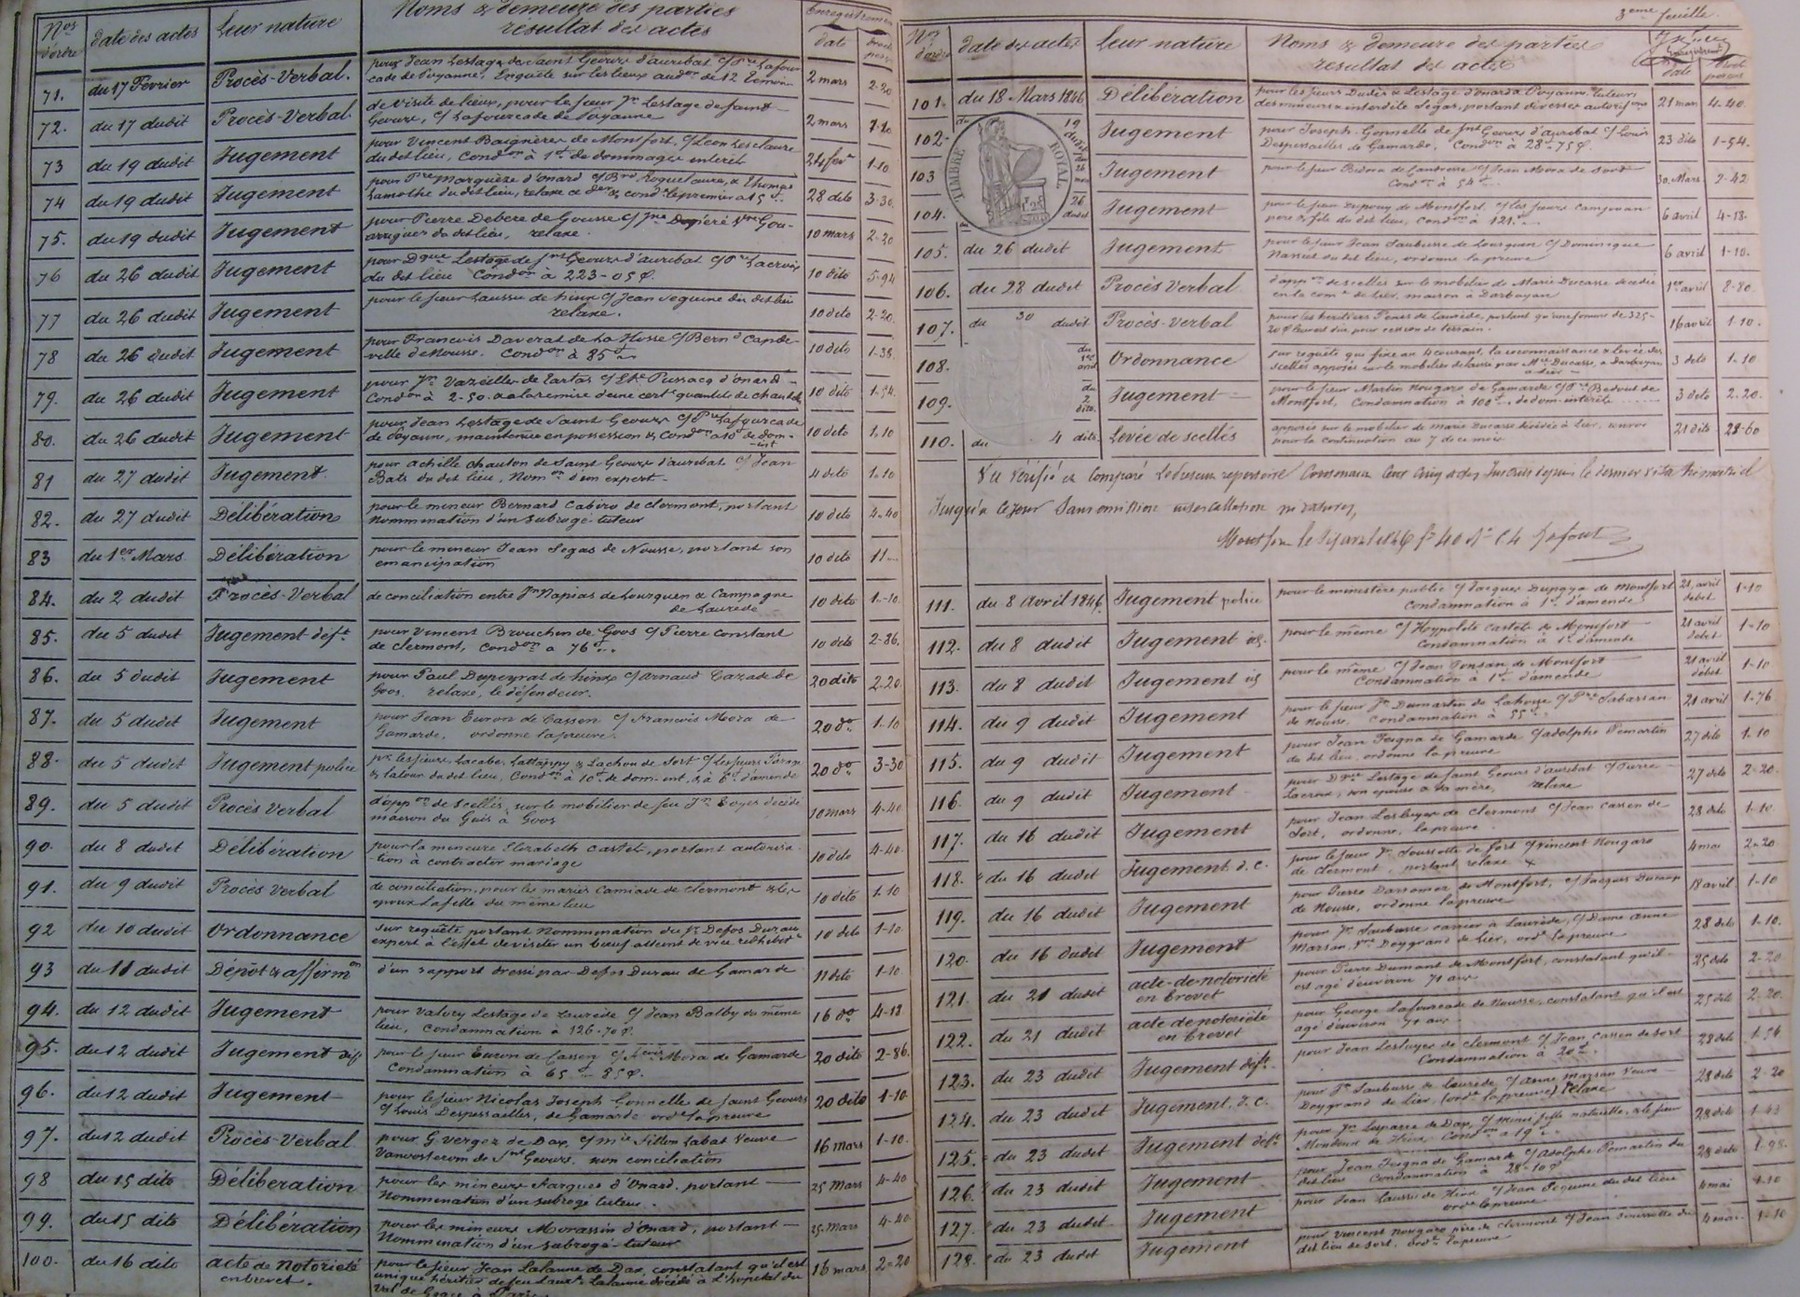 Nos d'ordre | date des actes | leur nature | Noms & demeure des parties résultat des actes | Enregistrement date | droits perçus
71. | du 17 Février | Procès-Verbal. | pour Jean Lestage de Saint Geours d'auribat c/ Pre Lafour-
cade de Poyanne, Enquête sur les lieux aud. de 12 témoins | 2 mars | 2-20
72. | du 17 dudit | Procès-Verbal | de visite de lieux, pour le sieur Jn Lestage de Saint
Geours, c/ Lafourcade de Poyanne | 2 mars | 1-10
73 | du 19 dudit | Jugement | pour Vincent Baignères de Montfort, c/ Léon Lesclaure
du dit lieu, Condon à 1f de dommages intérêt | 24 fer | 1-10
74 | du 19 dudit | Jugement | pour Pre Marquèze d'onard c/ Brd Roquelaure, & Thomas
Lamothe du dit lieu, relaxe | 28 dito | 3-30
75. | du 19 dudit | Jugement | pour Pierre Debere de Gousse
du dit lieu, relaxe. | 10 mars | 2-20
76 | du 26 dudit | Jugement | pour Dque Lestage de St Geours d'auribat c/ Pre Lacroix
du dit lieu Condon à 223-05c. | 10 dito | 5-94
77 | du 26 dudit | Jugement | pour le sieur Laussu de hinx c/ Jean Seguine du dit lieu
relaxe. | 10 dito | 2-20.
78 | du 26 dudit | Jugement | pour Francois Daverat de La Hosse c/ Bernd Capde-
ville de Nousse. Condon à 85f | 10 dito | 1-38
79. | du 26 dudit | Jugement | pour Jn Vazeilles de Tartas c/ Etne Pussacq d'onard -
Condon à 2-50. & a la remise d'une certe quantité de chaux | 10 dito | 1-54.
80. | du 26 dudit | Jugement | pour Jean Lestage de Saint Geours c/ Pre Lafourcade
de Poyanne, maintenue en possession & Condon a 10f de dom-
-int | 10 dito | 1-10
81 | du 27 dudit | Jugement. | pour achille chauton de Saint Geours d'auribat c/ Jean
Bats du dit lieu, Nomon d'un expert - | 4 dito | 1-10
82. | du 27 dudit | Délibération | pour le mineur Bernard Cabiro de clermont, portant
nommination d'un subrogé tuteur | 10 dito | 4-40
83 | du 1er Mars | Délibération | pour le mineur Jean Segas de Nousse, portant son
emancipation | 10 dito | 11-
84. | du 2 dudit | Procès-Verbal | de conciliation entre Jn Napias de Lourquen & Campagne
de Laurède | 10 dito | 1-10.
85. | du 5 dudit | Jugement deft | pour Vincent Brouchon de Goos c/ Pierre Constant
de clermont, Condon a 76f | 10 dito | 2-86.
86. | du 5 dudit | Jugement | pour Paul Dupeyrat de hinx c/ arnaud Cazade de
Goos, relaxe, le défendeur. | 20 dito | 2-20.
87. | du 5 dudit | Jugement | pour Jean Euron de Cassen c/ Francois Mora de
Gamarde, ordonne la preuve. | 20 do | 1-10
88. | du 5 dudit | Jugement police | pr les sieurs Lacabe, Lattappy & Lachou de Sort c/ les sieurs
& Latour du dit lieu, Condon à 10f de dom-int, & à 6f d'amende | 20 do | 3-30
89. | du 5 dudit | Procès Verbal | d'appon de Scellés, sur le mobilier de feu Jn décédé
maison du Guis à Goos | 10 mars | 4-40
90. | du 8 dudit | Délibération | pour la mineure Elizabeth Castets, portant autorisa-
-tion à contracter mariage | 10 dito | 4-40.
91. | du 9 dudit | Procès Verbal | de conciliation, pour les mariés Camiade de clermont & les
époux Lafitte du même lieu | 10 dito | 1-10
92 | du 10 dudit | Ordonnance | sur requête portant Nommination du Sr Defos Durau
expert à l'effet de visiter un bœuf atteint de vice redhibitre | 10 dito | 1-10.
93 | du 11 dudit | Dépôt & affirmon | d'un rapport dressé par Defos Durau de Gamarde | 11 dito | 1-10
94. | du 12 dudit | Jugement | pour Valery Lestage de Laurède c/ Jean Balby du même
lieu, Condamnation à 126-70c. | 16 do | 4-18
95. | du 12 dudit | Jugement deft | pour le sieur Euron de Cassen c/ Fcois Mora de Gamarde
Condamnation à 65f 85c. | 20 dito | 2-86.
96. | du 12 dudit | Jugement | pour le sieur Nicolas Joseph Gonnelle de Saint Geours
c/ Louis Despessailles, de Gamarde ordne la preuve | 20 dito | 1-10.
97. | du 12 dudit | Procès-Verbal | pour G. Vergez de Dax, c/ Mie Sillon Labat Veuve
Vanoosterom de St Geours, non conciliation | 16 mars | 1-10.
98 | du 15 dito | Délibération | pour les mineurs Farques d'Onard, portant
Nommination d'un subrogé tuteur. | 25 Mars | 4-40
99. | du 15 dito | Délibération | pour les mineurs Morassin d'Onard, portant -
Nommination d'un subrogé-tuteur | 25 Mars | 4-40
100. | du 16 dito | acte de Notoriété
en brevet. | pour le sieur Jean Lalanne de Dax, constatant qu'il est
unique héritier de feu Laurt Lalanne décédé à l'hopital du
Val de Grace à Paris | 16 mars | 2-20
3eme feuille.
Nos d'ordre | date des actes | leur nature | Noms & demeure des parties résultat des actes | Enregistrement date | droits perçus
101. | du 18 Mars 1846 | Délibération | pour les sieurs Dudix & Lestage d'onard & Poyanne, tuteurs
des mineurs & interdits Segas, portant diverses autorisons | 21 mars | 4-40.
102. | du 19 dudit | Jugement | pour Joseph Gonnelle de Snt Geours d'auribat c/ Louis
Despessailles de Gamarde, Condon à 28f-75c. | 23 dito | 1-54.
TIMBRE ROYAL
103 | Jugement | pour le sieur Bidora c/ Jean Mora de Sort
Condon à 54f | 30 Mars | 2-42
104. | 26 dudit | Jugement | pour le sieur Dupouy de Montfort, c/ les sieurs Campouan
pere & fils du dit lieu, Condon à 121f | 6 avril | 4-18.
105. | du 26 dudit | Jugement | pour le sieur Jean Saubusse de Lourquen c/ Dominique
Nassiet du dit lieu, ordonne la preuve | 6 avril | 1-10.
106. | du 28 dudit | Procès Verbal | d'appon de scellés sur le mobilier de Marie Ducasse décédée
en la come de Lier, maison à Darbayan | 1er avril | 8-80.
107. | du 30 dudit | Procès-Verbal | pour les héritiers de Laurède, portant qu'une somme de 325-
20c leur est due pour cession de terrain. | 16 avril | 1-10.
108. | du 1er avril | Ordonnance | sur requête qui fixe au 4 courant, la reconnaissance & levée des
scellés apposés sur le mobilier delaissé par Mie Ducasse à Darbayan
à Lier | 3 dito | 1-10
109. | du 2 dito. | Jugement | pour le sieur Martin Nougaro de Gamarde c/ Pre Bedout de
Montfort, Condamnation à 100f de dom-intérêts | 3 dito | 2-20.
110. | du 4 dito. | Levée de scellés | apposés sur le mobilier de Marie Ducasse décédée à Lier, renvoi
pour la continuation au 7 de ce mois | 21 dito | 28-60
Vu Vérifié et comparé le dessus repertoire contenant cent cinq actes inscrits depuis le dernier visa trimestriel
Jusqu'à ce jour Sans omission intercallation ni ratures,
Montfort le avril 1846 fo 40 Lafont
111. | du 8 Avril 1846. | Jugement police | pour le ministère public c/ Jacques Dupuya de Montfort
Condamnation à 1f d'amende | 21 avril debet | 1-10
112. | du 8 dudit | Jugement | pour le même c/ Hyppolite Castets de Montfort
Condamnation à 1f d'amende | 21 avril debet | 1-10
113. | du 8 dudit | Jugement | pour le même c/ Jean Ponsan de Montfort
Condamnation à 1f d'amende | 21 avril débet | 1-10
114. | du 9 dudit | Jugement | pour le sieur Jn Dumartin de Lahosse c/ Pre Labassan
de Nousse, Condamnation à 55f | 21 avril | 1-76
115. | du 9 dudit | Jugement | pour Jean Feigna de Gamarde c/ adolphe Pomartin
du dit lieu, ordonne la preuve | 27 dito | 1-10
116. | du 9 dudit | Jugement | pour Dque Lestage de Saint Geours d'auribat c/ Pierre
Lacroix, son épouse & sa mère, relaxe | 27 dito | 2-20.
117. | du 16 dudit | Jugement | pour Jean Lesluyes de clermont c/ Jean Cassen de
Sort, ordonne la preuve | 28 dito | 1-10.
118. | du 16 dudit | Jugement. d. c. | pour le sieur Jn de Sort c/ Vincent Nougaro
de clermont, portant relaxe | 4 mai | 2-20
119. | du 16 dudit | Jugement | pour Pierre Darromes de Montfort, c/ Jacques
de Nousse, ordonne la preuve | 18 avril | 1-10
120. | du 16 dudit | Jugement | pour Jn Saubusse carrier à Laurède, c/ Dame anne
Marsan, Vve Deygrand de Lier, ordne la preuve | 28 dito | 1-10.
121. | du 21 dudit | acte-de-notoriété
en brevet | pour Pierre Dumont de Montfort, constatant qu'il
est agé d'environ 71 ans | 25 dito | 2-20
122. | du 21 dudit | acte de notoriété
en brevet | pour George Lafourcade de Nousse, constatant qu'il est
agé d'environ 71 ans | 25 dito | 2-20.
123. | du 23 dudit | Jugement deft. | pour Jean Lesluyes de clermont c/ Jean Cassen de Sort
Condamnation à 20f. | 28 dito | 1-54
124. | du 23 dudit | Jugement. d. c. | pour Jn Saubusse de Laurède c/ anne marsan Veuve
Deygrand de Lier, (ordne la preuve) relaxe | 28 dito | 2-20
125. | du 23 dudit | Jugement deft. | pour Jn Lagarre de Dax, c/ Marie fille naturelle, & le sieur
de Hinx, Condon a 19f | 28 dito | 1-43
126. | du 23 dudit | Jugement | pour Jean Feigna de Gamarde c/ Adolphe Pomartin du
dit lieu Condamnation à 28f-10c | 28 dito | 1-98.
127. | du 23 dudit | Jugement | pour Jean Laussu de Hinx c/ Jean Seguine du dit lieu
ordne la preuve | 4 mai | 1-10
128. | du 23 dudit | Jugement | pour Vincent Nougaro père de clermont c/ Jean du
dit lieu de Sort, ordne la preuve | 4 mai. | 1-10